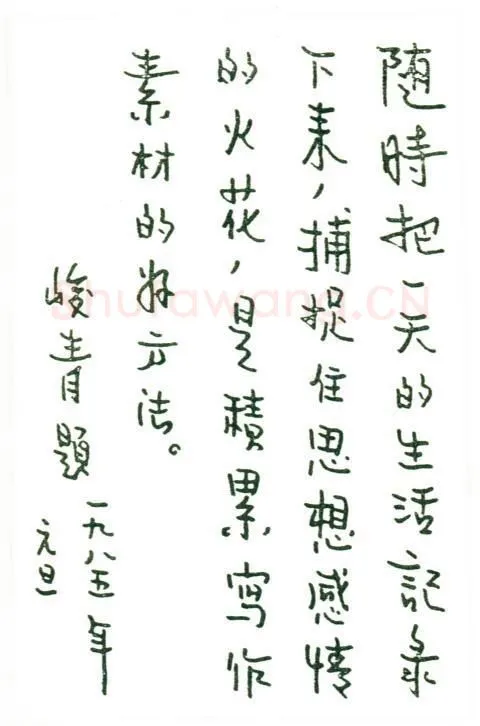 随時把一天的生活記录
下来，捕捉住思想感情
的火花，是積累寫作
素材的好方法。
峻青題
一九八五年
元旦
Shufawang.CN